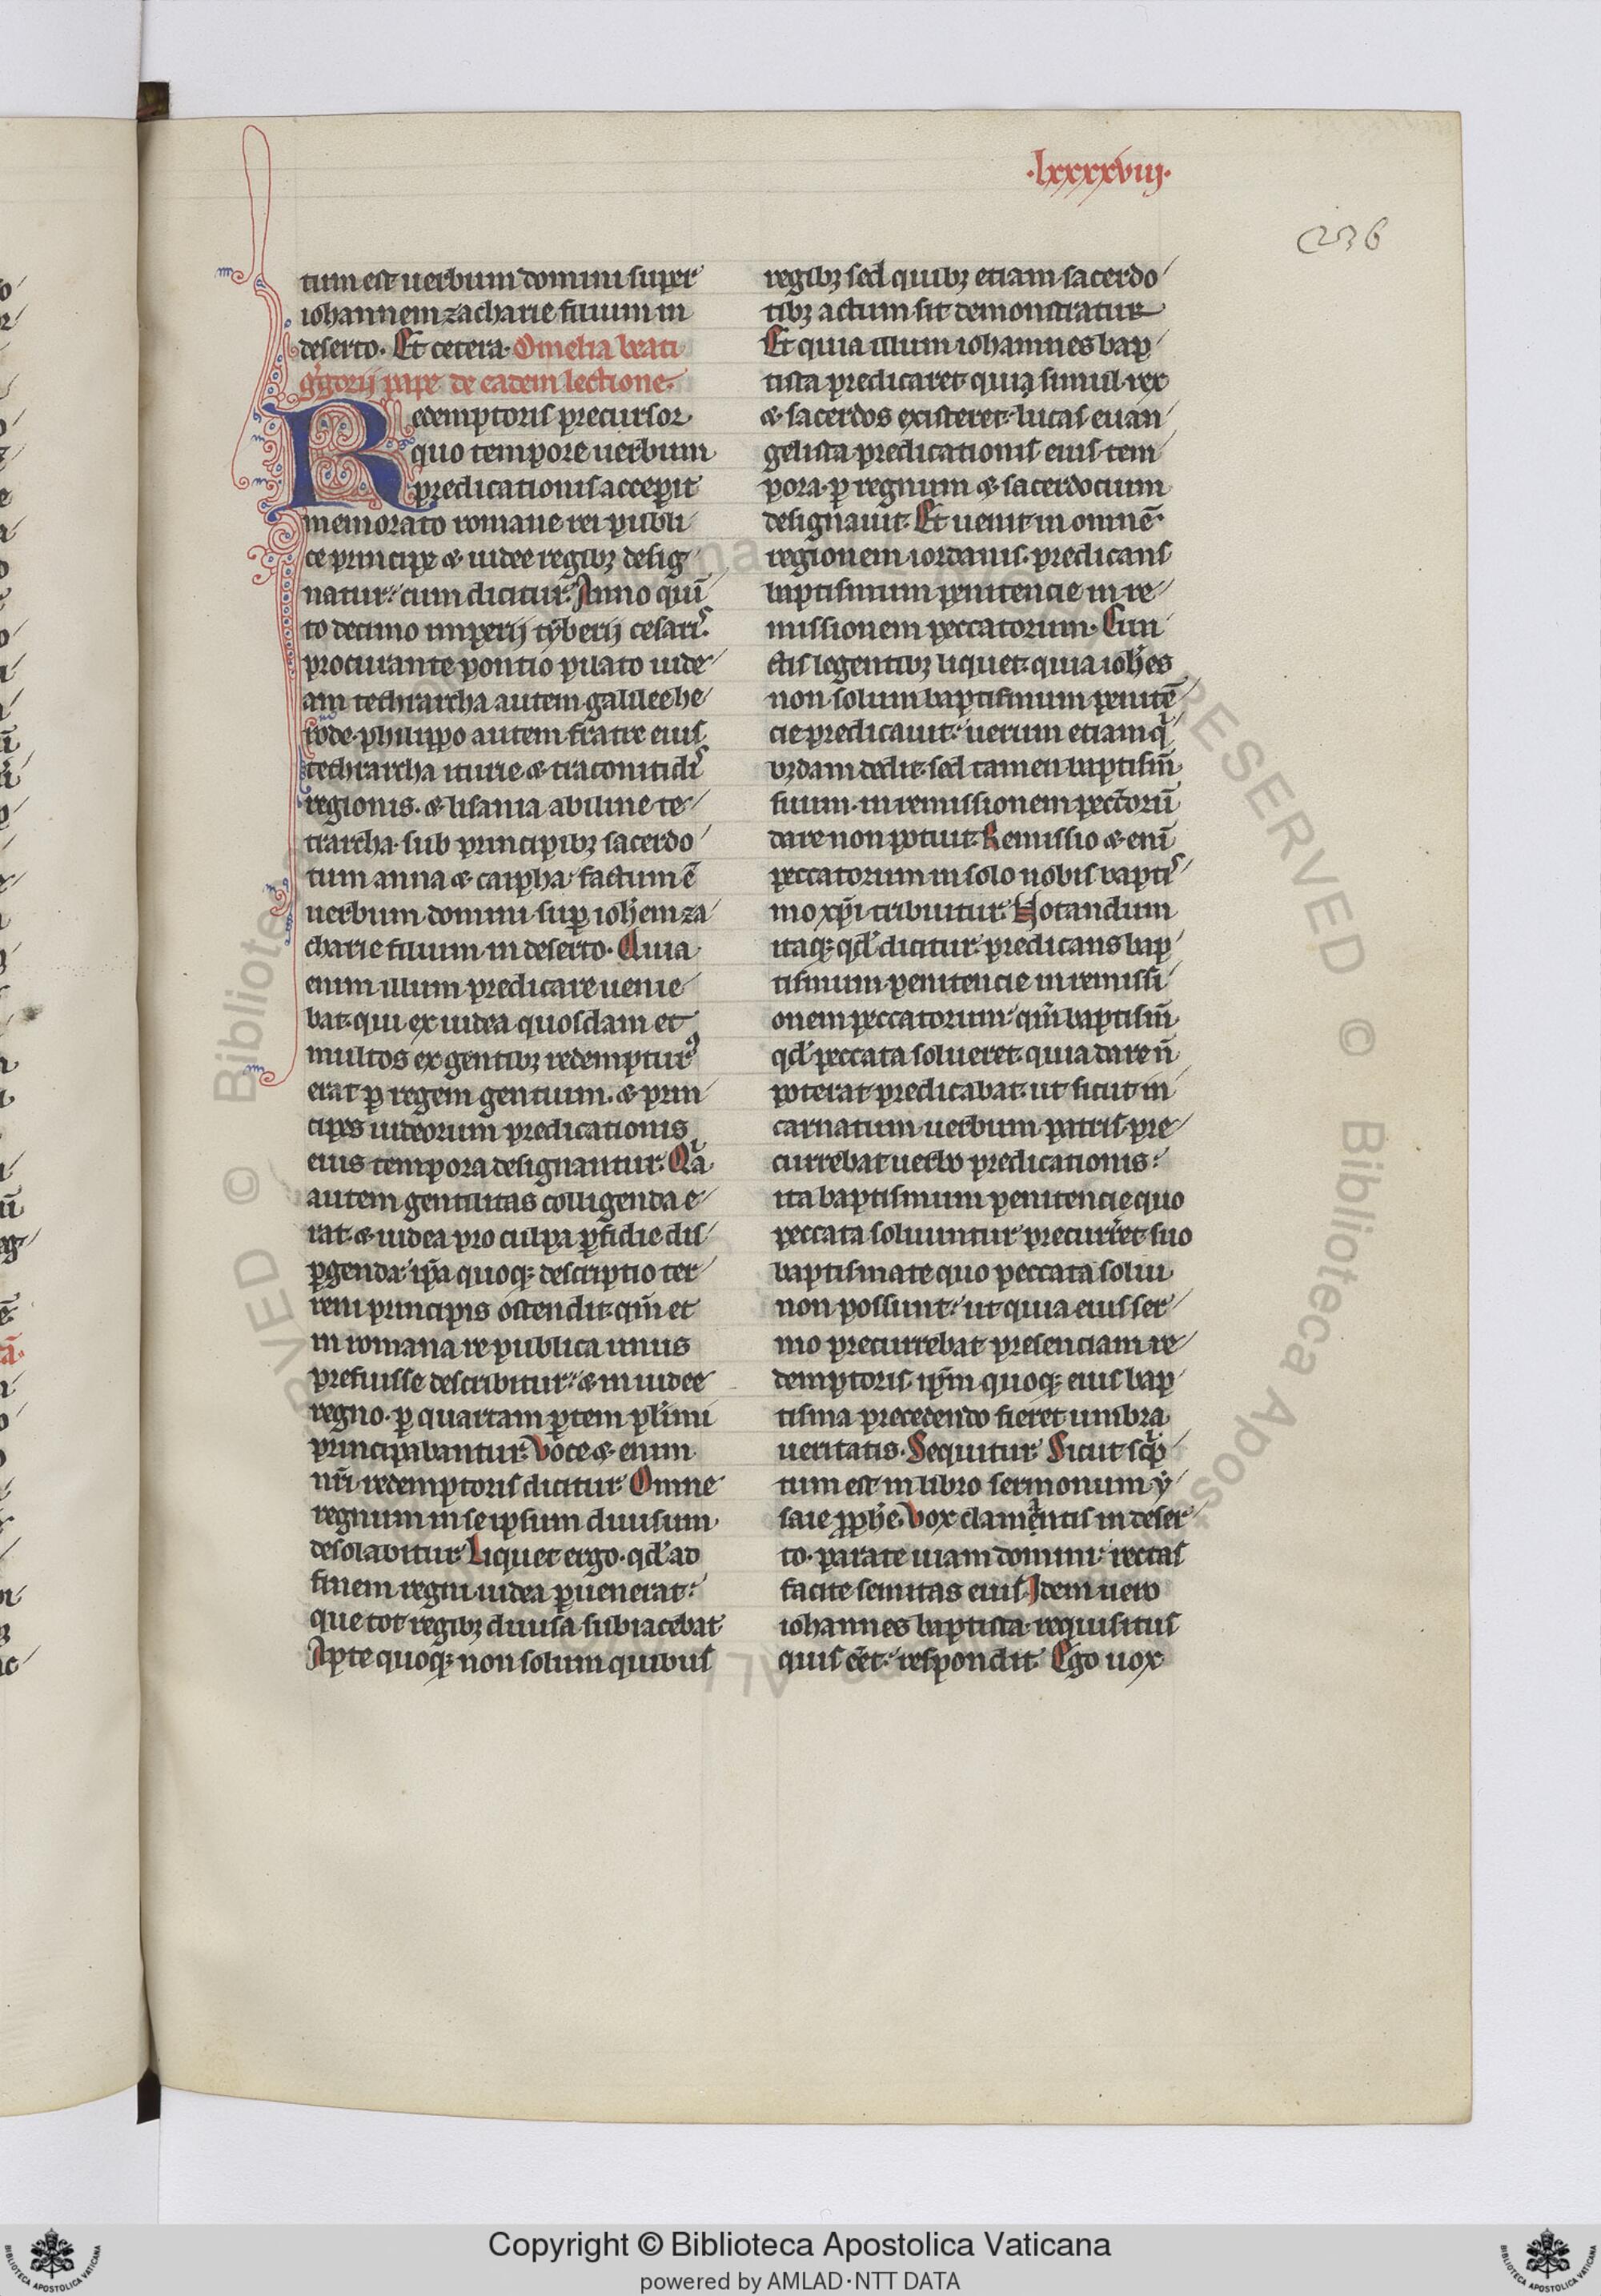 ·lxxxxviij·
236
tum est uerbum domini super
iohannem zacharie filium in
deserto. Et cetera. Omelia beati
g̾gorij pape de eadem lectione.
Redemptoris precursor
quo tempore uerbum
predicationis accepit
memorato romane rei publi
ce principe & iudee regibꝫ desig
natur. cum dicitur. Anno quī
to decimo imperij tyberij cesarꝭ.
procurante pontio pilato iude
am tethrarcha autem galilee he
rode. philippo autem fratre eius
tethrarcha iturie & traconitidꝭ
regionis. & lisania abiline te
trarcha. sub principibꝫ sacerdo
tum anna & caipha. factum ē
uerbum domini suꝑ ioh̅em za
charie filium in deserto. Quia
enim illum predicare uenie
bat. qui ex iudea quosdam et
multos ex gentibꝫ redempturꝰ
erat ꝑ regem gentium. & prin
cipes iudeorum predicationis
eius tempora designantur. Qͣa
autem gentilitas colligenda e
rat. & iudea pro culpa ꝑfidie dis
ꝑgenda. ip̅a quoqꝫ descriptio ter
reni principis ostendit. qm̅ et
in romana re publica unus
prefuisse describitur. & in iudee
regno. ꝑ quartam ꝑtem plͥimi
principabantur. Voce & enim
nr̅i redemptoris dicitur. Omne
regnum in se ipsum diuisum
desolabitur. Liquet ergo. qd̓ ad
finem regni iudea ꝑuenerat.
que tot regibꝫ diuisa subiacebat
Apte quoqꝫ non solum quibus
regibꝫ sed quibꝫ etiam sacerdo
tibꝫ actum sit demonstratur
Et quia illum iohannes bap
tista predicaret. quia simul rex
& sacerdos existeret. lucas euan
gelista predicationis eius tem
pora. ꝑ regnum & sacerdocium
designauit. Et uenit in omnē
regionem iordanis. predicans
baptismum penitencie in re
missionem peccatorum. Cun
ctis legentibꝫ liquet. quia ioh̅es
non solum baptismum penitē
cie predicauit. uerum etiam qͥ
bꝫdam dedit. sed tamen baptism̅
suum in remissionem pecc̅orū
dare non potuit. Remissio & enī
peccatorum in solo nobis baptiˢ
mo xp̅i tribuitur. Notandum
itaqꝫ qd̓ dicitur predicans bap
tismum penitencie in remissi
onem peccatorum. qm̅ baptism̅
qd̓ peccata solueret. quia dare n̅
poterat predicabat. ut sicut in
carnatum uerbum patris pre
currebat uerbo predicationis.
ita baptismum penitencie quo
peccata soluuntur precurreret suo
baptismate quo peccata solui
non possunt. ut quia eius ser
mo precurrebat presenciam re
demptoris. ip̅m quoqꝫ eius bap
tisma precedendo fieret umbra
ueritatis. Sequitur. Sicut sc̅pͥ
tum est in libro sermonum y
saie ꝓph̅e. Vox clamantis in deser
to. parate uiam domini. rectas
facite semitas eius. Idem uero
iohannes baptista requisitus
quis e̅et. respondit. Ego uox
Copyright © Biblioteca Apostolica Vaticana
powered by AMLAD·NTT DATA